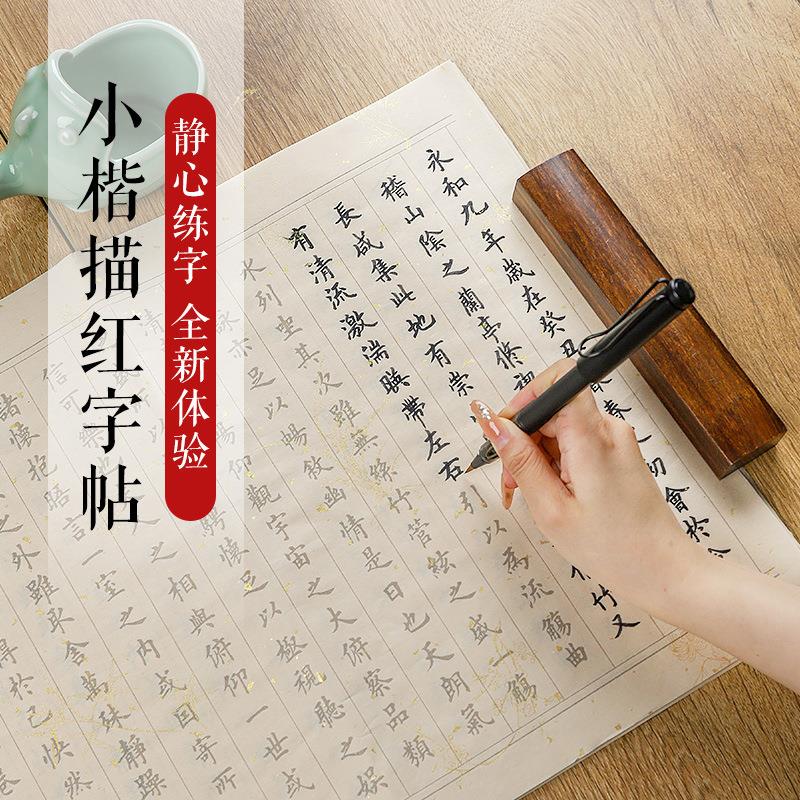 小楷描红字帖
静心练字 全新体验
永和九年歲在癸丑春之初會於會
稽山陰之蘭亭脩禊
長咸集此地有崇竹又
有清流激湍暎帶左右引以為流觴曲
水列坐其次雖無絲竹管絃之盛一觴
詠亦足以暢敘幽情是日也天朗氣
清仰觀宇宙之大俯察品類
騁懷足以極視聽之娱
信可之相與俯仰一世或
諸懷抱晤言一室之內或因寄所
之外雖取舍萬殊靜躁
得於己快然